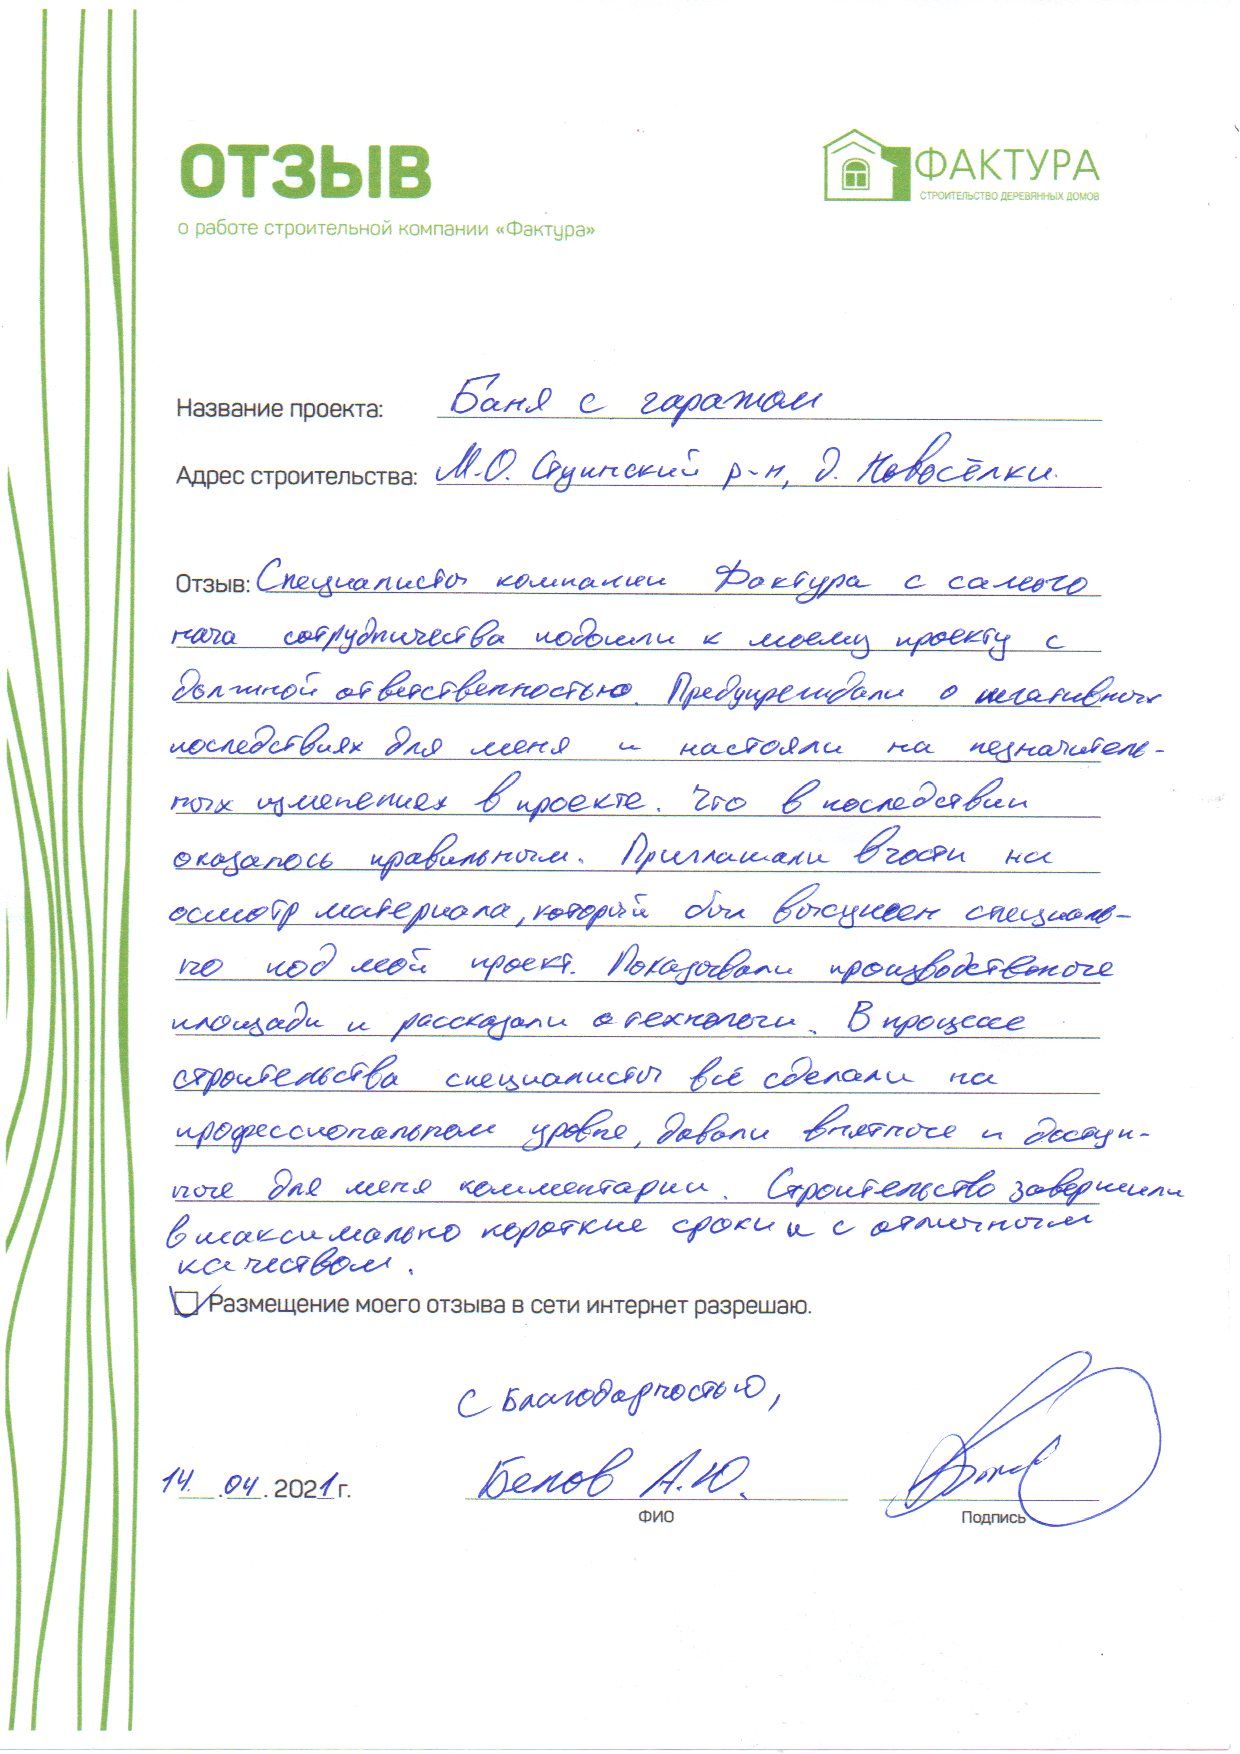 ОТЗЫВ
о работе строительной компании «Фактура»
ФАКТУРА
СТРОИТЕЛЬСТВО ДЕРЕВЯННЫХ ДОМОВ
Название проекта: Баня с гаражом
Адрес строительства: М.О. Ступинский р-н, д. Новосёлки.
Отзыв: Специалисты компании Фактура с самого
нача сотрудничества подошли к моему проекту с
должной ответственностью. Предупреждали о негативных
последствиях для меня и настояли на незначитель-
ных изменениях в проекте. Что в последствии
оказалось правильным. Приглашали в гости на
осмотр материала, который был высушен специаль-
но под мой проект. Показывали производственные
площади и рассказали о технологии. В процессе
строительства специалисты всё сделали на
профессиональном уровне, давали внятные и доступ-
ные для меня комментарии. Строительство завершили
в максимально короткие сроки и с отличным
качеством.
Размещение моего отзыва в сети интернет разрешаю.
С Благодарностью,
14.04.2021г. Белов А.Ю.
ФИО Подпись